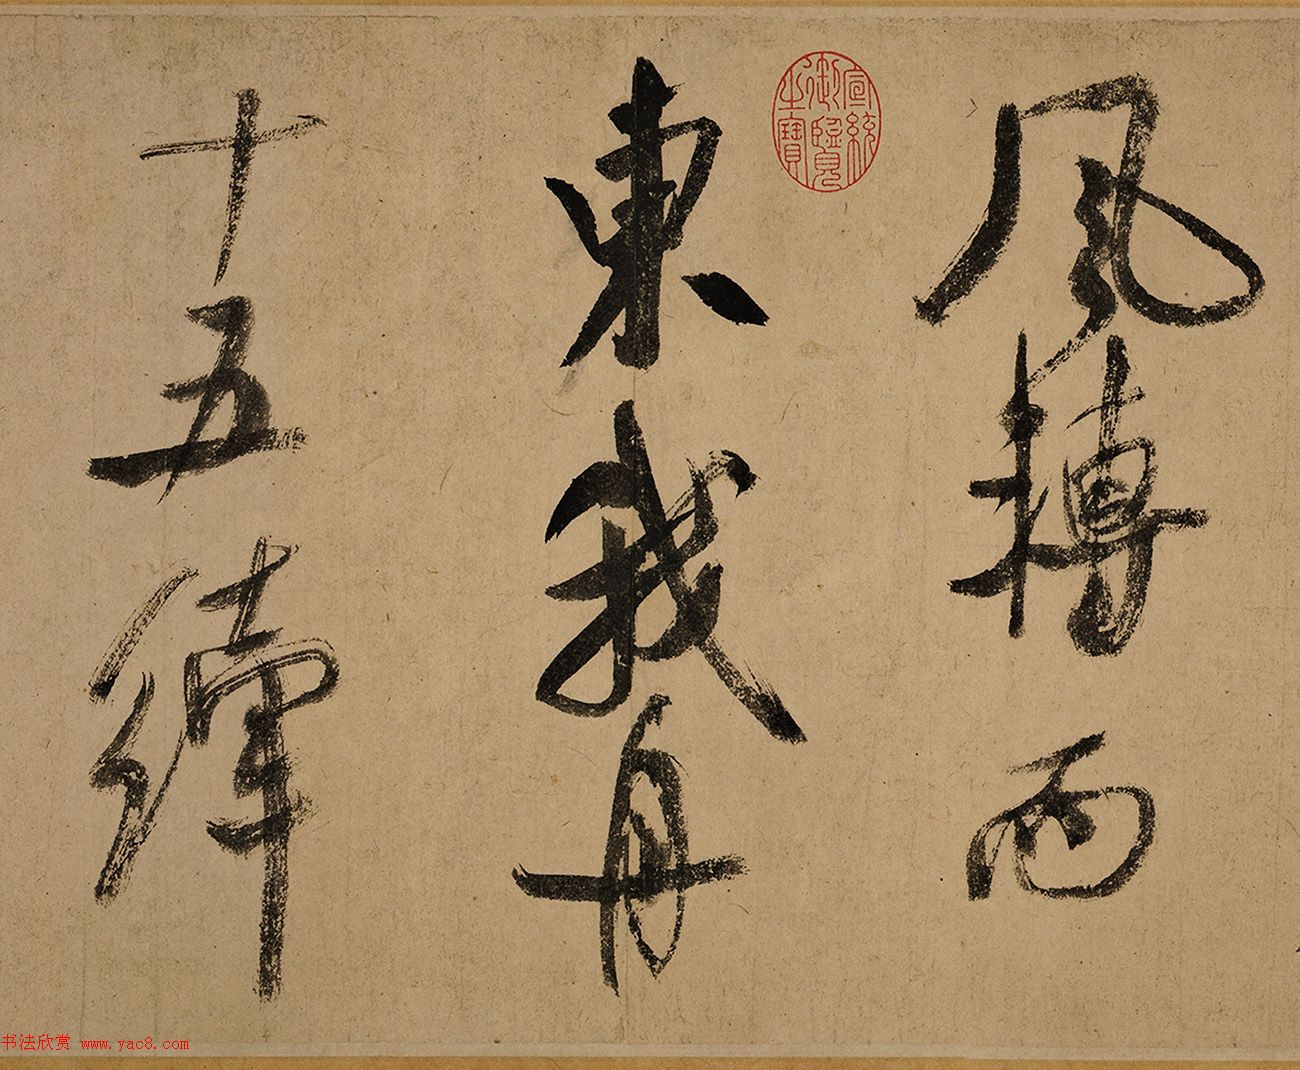 風轉西
東我舟
十五纖
宣統
御覽
之寶
书法欣赏 www.yac8.com